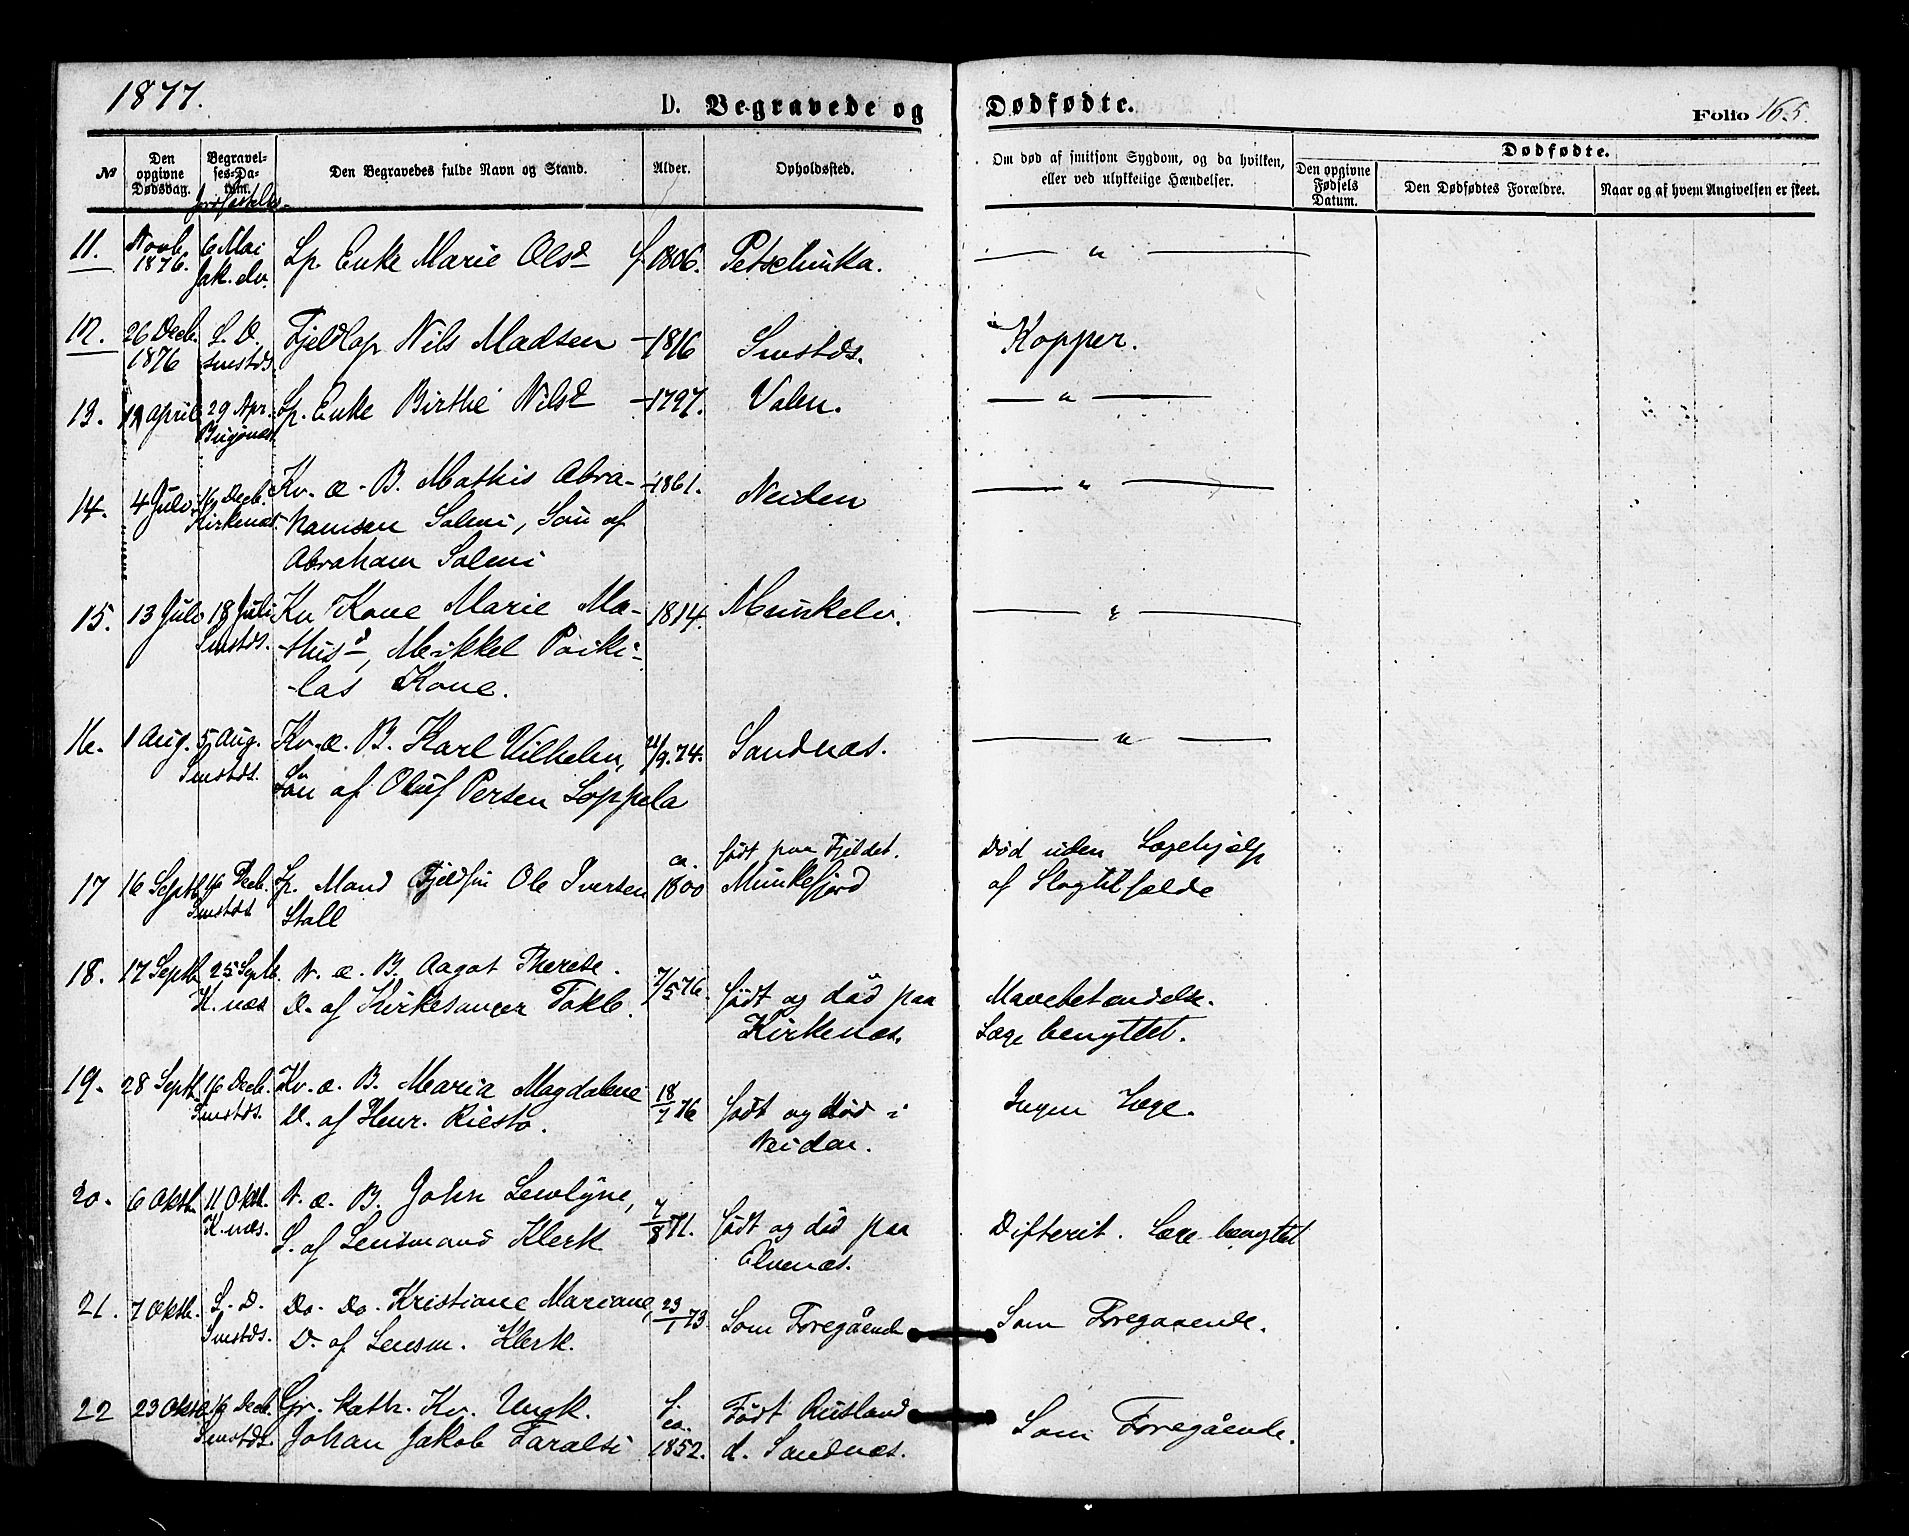 1877.
D. Begravede og Dødfødte.
Folio 165.
№
Den opgivne Dødsdag.
Begravelses-Datum.
Jordfæstelse-
Den Begravedes fulde Navn og Stand.
Alder.
Opholdssted.
Om død af smitsom Sygdom, og da hvilken, eller ved ulykkelige Hændelser.
Dødfødte.
Den opgivne Fødsels Datum.
Den Dødfødtes Forældre.
Naar og af hvem Angivelsen er skeet.
11. Novb. 6 Mai Lp. Enke Marie Olsd f. 1806. Petschinka. — " —
1876. Jak. elv.
12. 26 Decb. S. D. Fjeldlap Nils Madsen — 1816 Smstds. Kopper.
1876 Smstds
13. 12 April 29 Apr. Lp. Enke Birthe Nilsd — 1797. Valen. — " —
Bugønæs
14. 4 Juli 16 Decb. Kv. æ. B. Mathis Abra- -1861. Neiden — " —
Kirkenæs. hamsen Salmi, Søn af
Abraham Salmi
15. 13 Juli 18 Juli Kv. Kone Marie Ma- 1814. Munkelv. — " —
Smstds. -thisd, Mikkel Poiki-
-las Kone.
16. 1 Aug. 5 Aug. Kv. æ. B. Karl Vilhelm, 21/9. 74. Sandnæs. — " —
Smstds. Søn af Oluf Persen Loppela
17 16 Septb. 16 Decb. Lp. Mand Fjeldfin Ole Iversen ca. 1800 født paa Fjeldet. Død uden Lægehjælp
Smstds. Stall Munkefjord af Slagtilfælde
18. 17 Septb. 25 Septb. N. æ. B. Aagot Therese. 7/5 76. født og død paa Mavebetændelse.
K. næs D. af Kirkesanger Tokle. Kirkenæs. Læge benyttet.
19. 28 Septb. 16 Decb. Kv. æ. B. Maria Magdalene 18/7 76 født og død i Ingen Læge.
Smstds. D. af Henr. Riesto. Neiden.
20. 6 Oktb. 11 Oktb. N. æ. B. John Lewlyne, 7/8 71. født og død paa Difterit. Læge benyttet
K. næs. S. af Lensmand Klerk Elvenæs.
21. 7 Oktb. S. D. Do. Do. Kristiane Mariane, 23/1 73. Som Foregående Som Foregaaende.
Smstds. D. af Lensm. Klerk.
22 23 Oktb. 16 Decb. Gr. kath. Kv. Ungk. f. ca. Født Rusland Som Foregående.
Smstds. Johan Jakob 1852. d. Sandnæs.